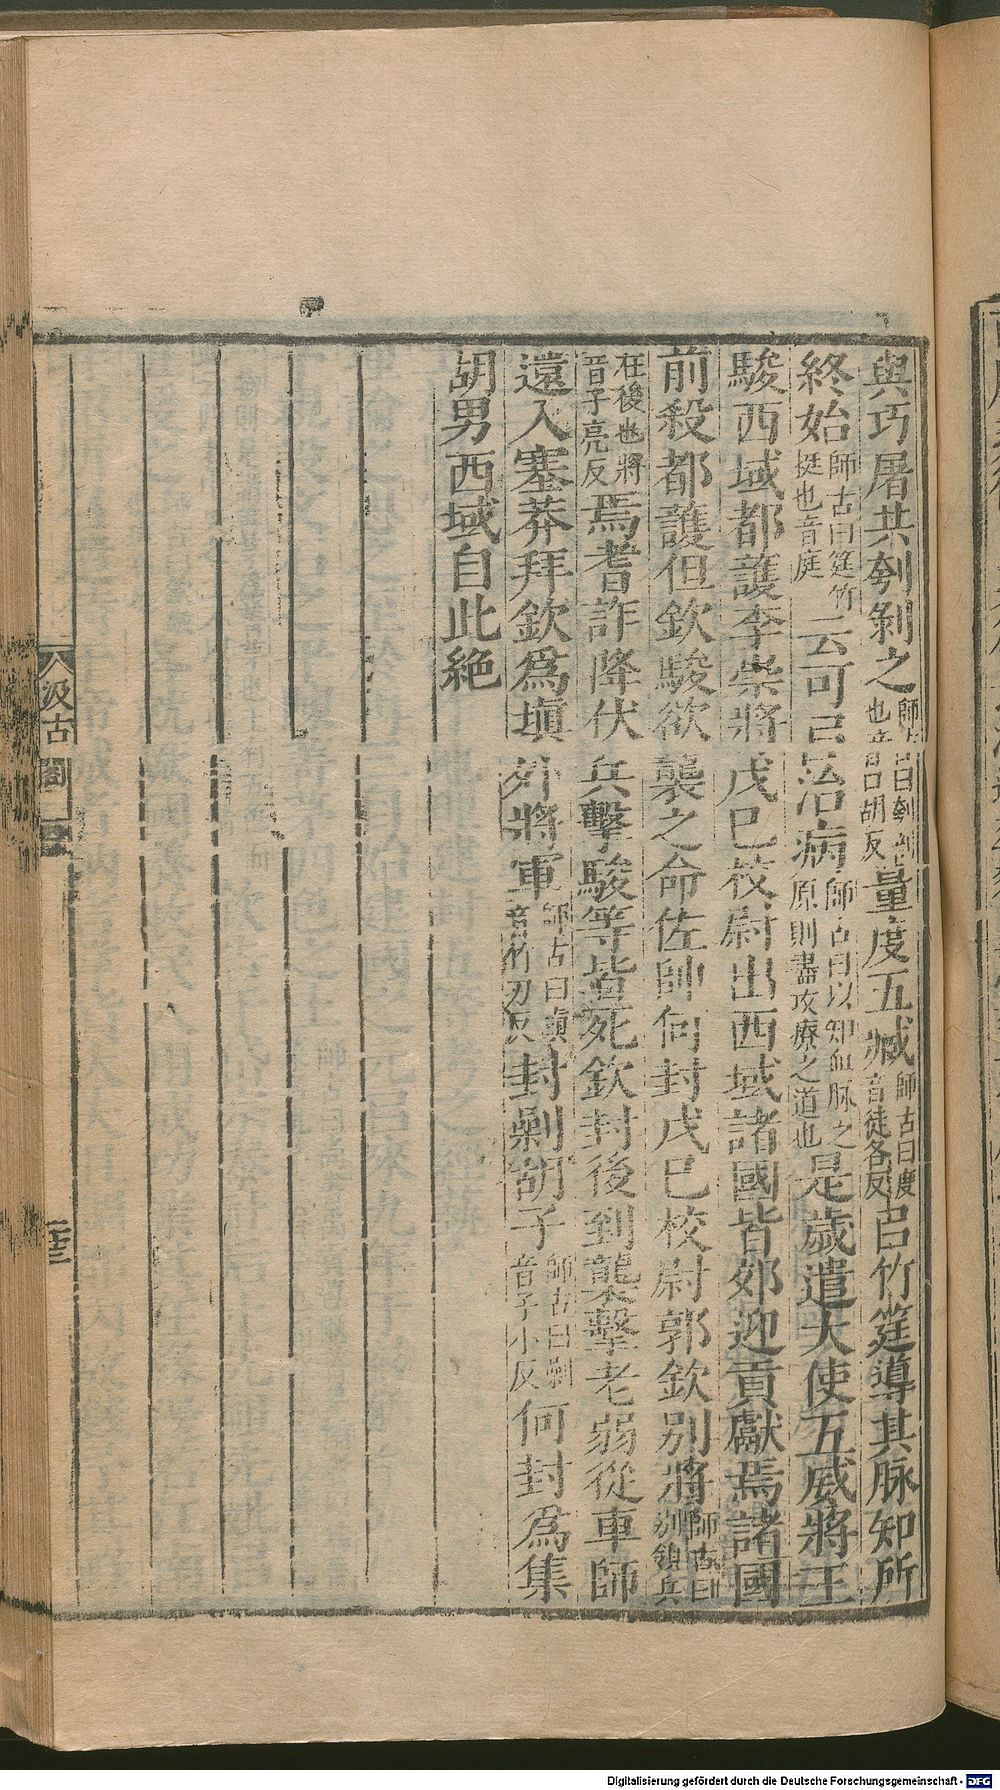 與巧屠共刳剝之師古曰刳剖也音口胡反量度五臧師古曰度音徒各反㠯竹筳導其脉知所
終始師古曰筳竹挺也音庭云可㠯治病師古曰以知血脉之原則盡攻療之道也是歲遣大使五威將王
駿西域都護李崇將戊巳校尉出西域諸國皆郊迎貢獻焉諸國
前殺都護但欽駿欲襲之命佐帥何封戊巳校尉郭欽別將師古曰別領兵
在後也將音子亮反焉耆詐降伏兵擊駿等皆死欽封後到襲擊老弱從車師
還入塞莽拜欽爲塡外將軍師古曰塡音竹刃反封劋胡子師古曰劋音子小反何封爲集
胡男西域自此絶
汲古閣
Digitalisierung gefördert durch die Deutsche Forschungsgemeinschaft - DFG